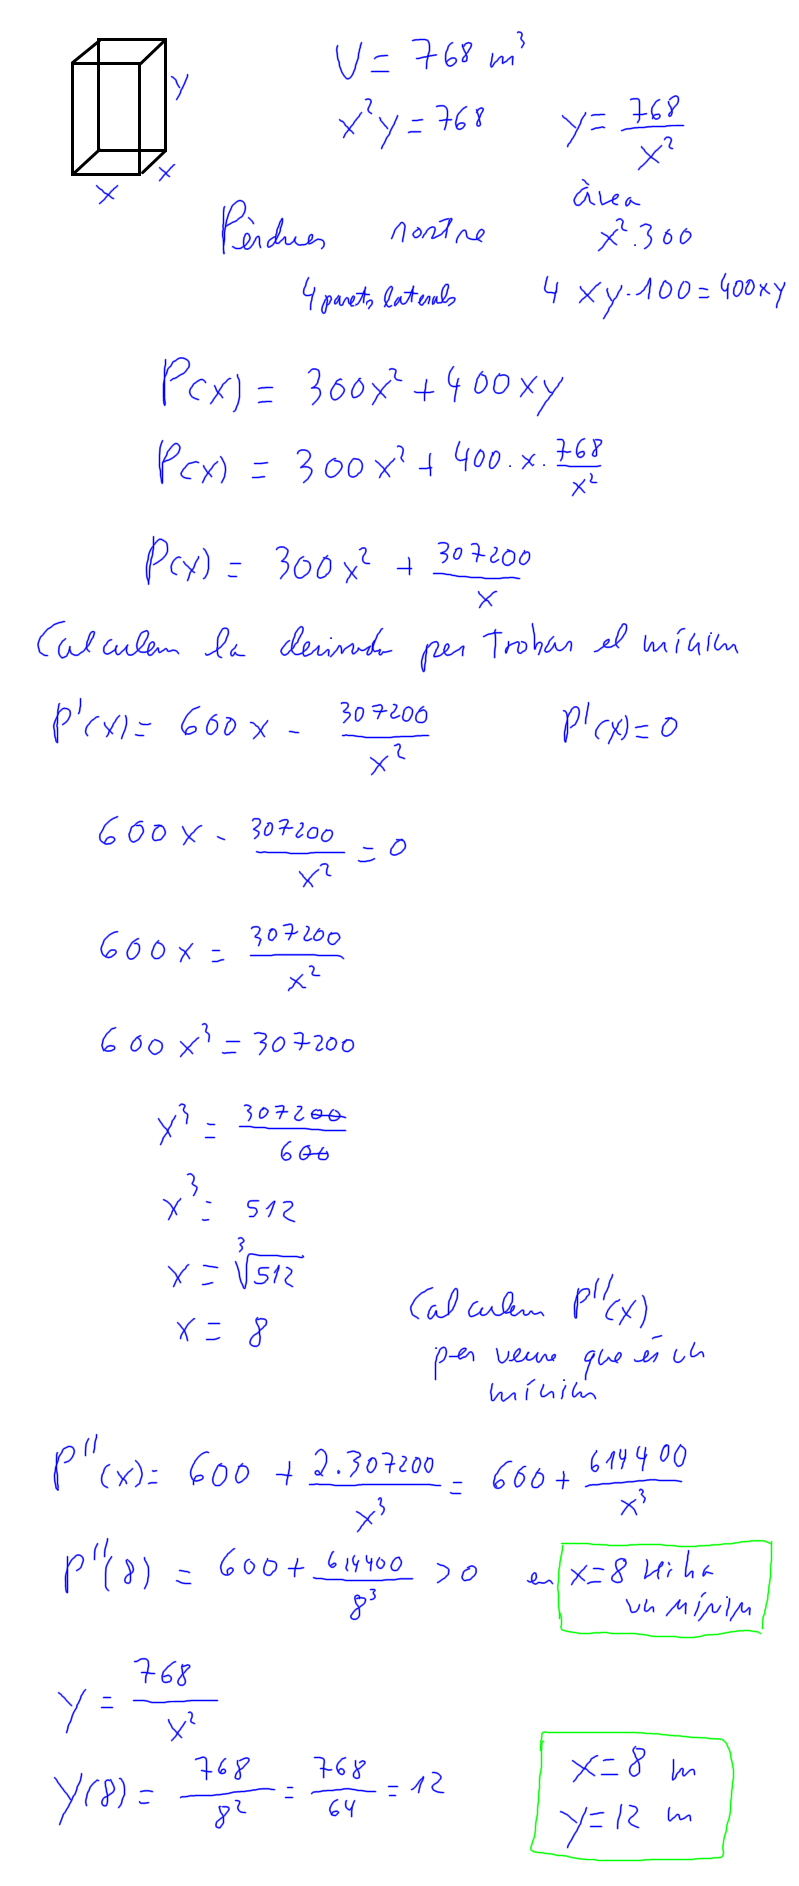 V = 768 m³
y
x² y = 768 y = 768/x²
x
x
àrea
Pèrdues sostre x² · 300
4 parets laterals 4 xy · 100 = 400xy
P(x) = 300x² + 400xy
P(x) = 300x² + 400 · x · 768/x²
P(x) = 300x² + 307200/x
Calculem la derivada per trobar el mínim
P'(x) = 600x - 307200/x² P'(x) = 0
600x - 307200/x² = 0
600x = 307200/x²
600x³ = 307200
x³ = 307200/600
x³ = 512
x = ³√512
x = 8
Calculem P''(x)
per veure que és un
mínim
P''(x) = 600 + 2·307200/x³ = 600 + 614400/x³
P''(8) = 600 + 614400/8³ > 0 en x=8 hi ha
un mínim
y = 768/x²
y(8) = 768/8² = 768/64 = 12
x=8 m
y=12 m